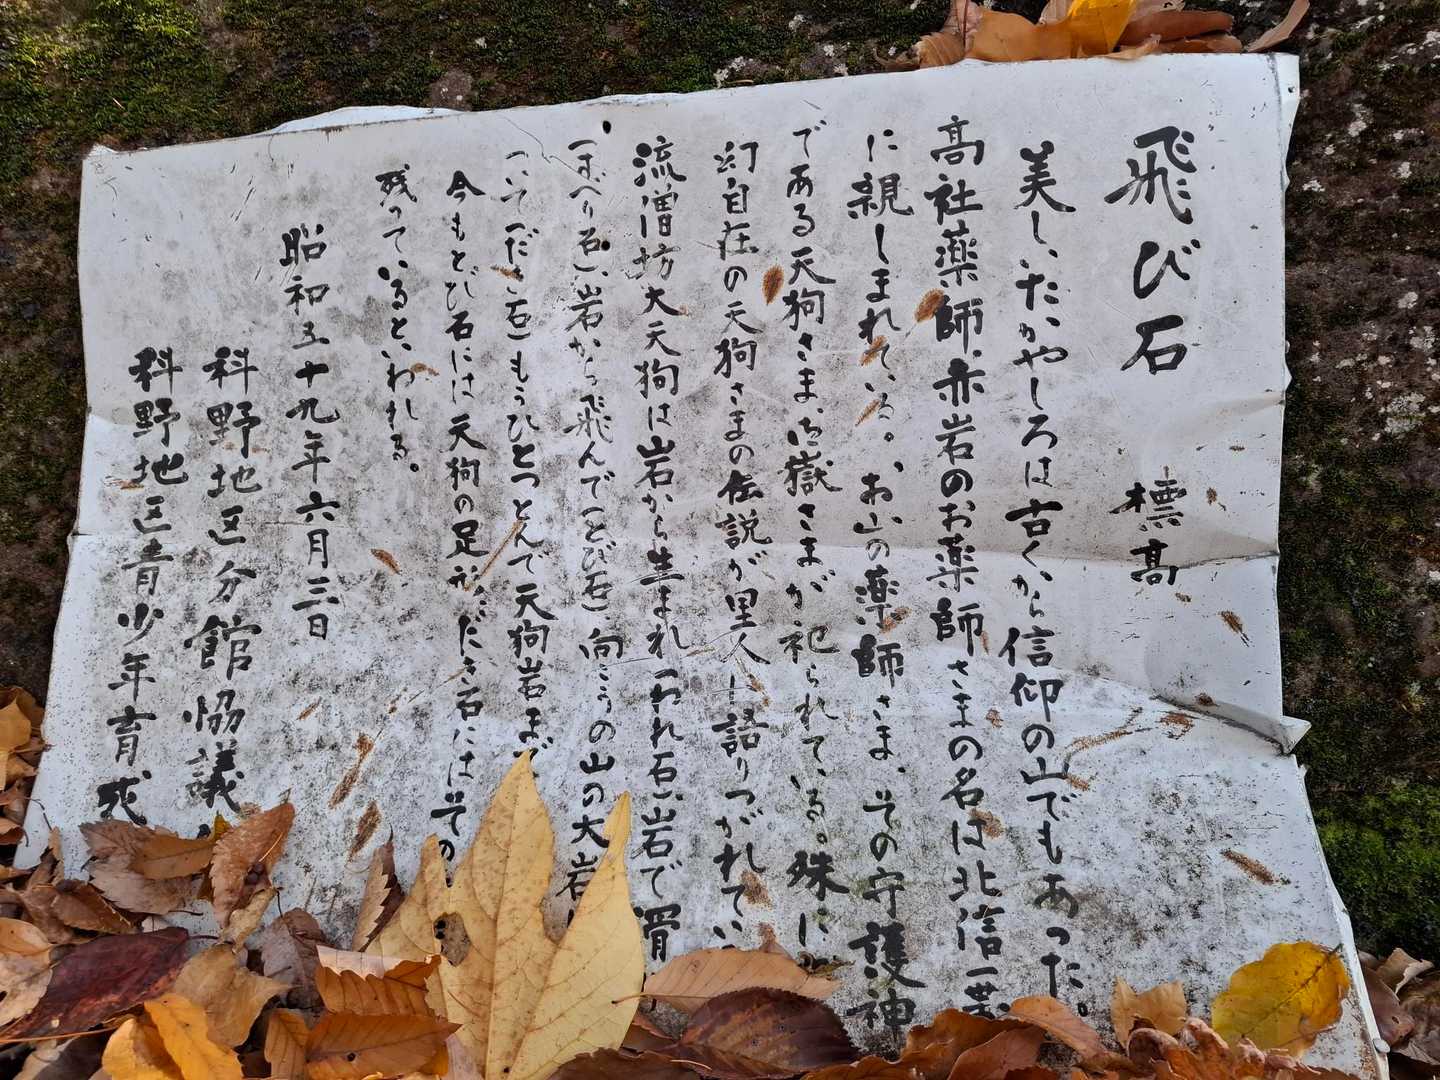 飛び石 標高
美しいたかやしろは古くから信仰の山でもあった。
高社薬師、赤岩のお薬師さまの名は北信一葉
に親しまれている。お山の薬師さま、その守護神
である天狗さま、御嶽さまが祀られている。殊に
幻自在の天狗さまの伝説が里人に語りつがれてい
流僧坊大天狗は岩から生まれ「われ石」岩で滑
「すべり石」岩から飛んで「とび石」向こうの山の大岩に
ついて「だき石」もうひとつとんで天狗岩まで
今もとび石には天狗の足形、だき石にはその
残っているといわれる。
昭和五十九年六月三日
科野地区分館協議
科野地区青少年育成